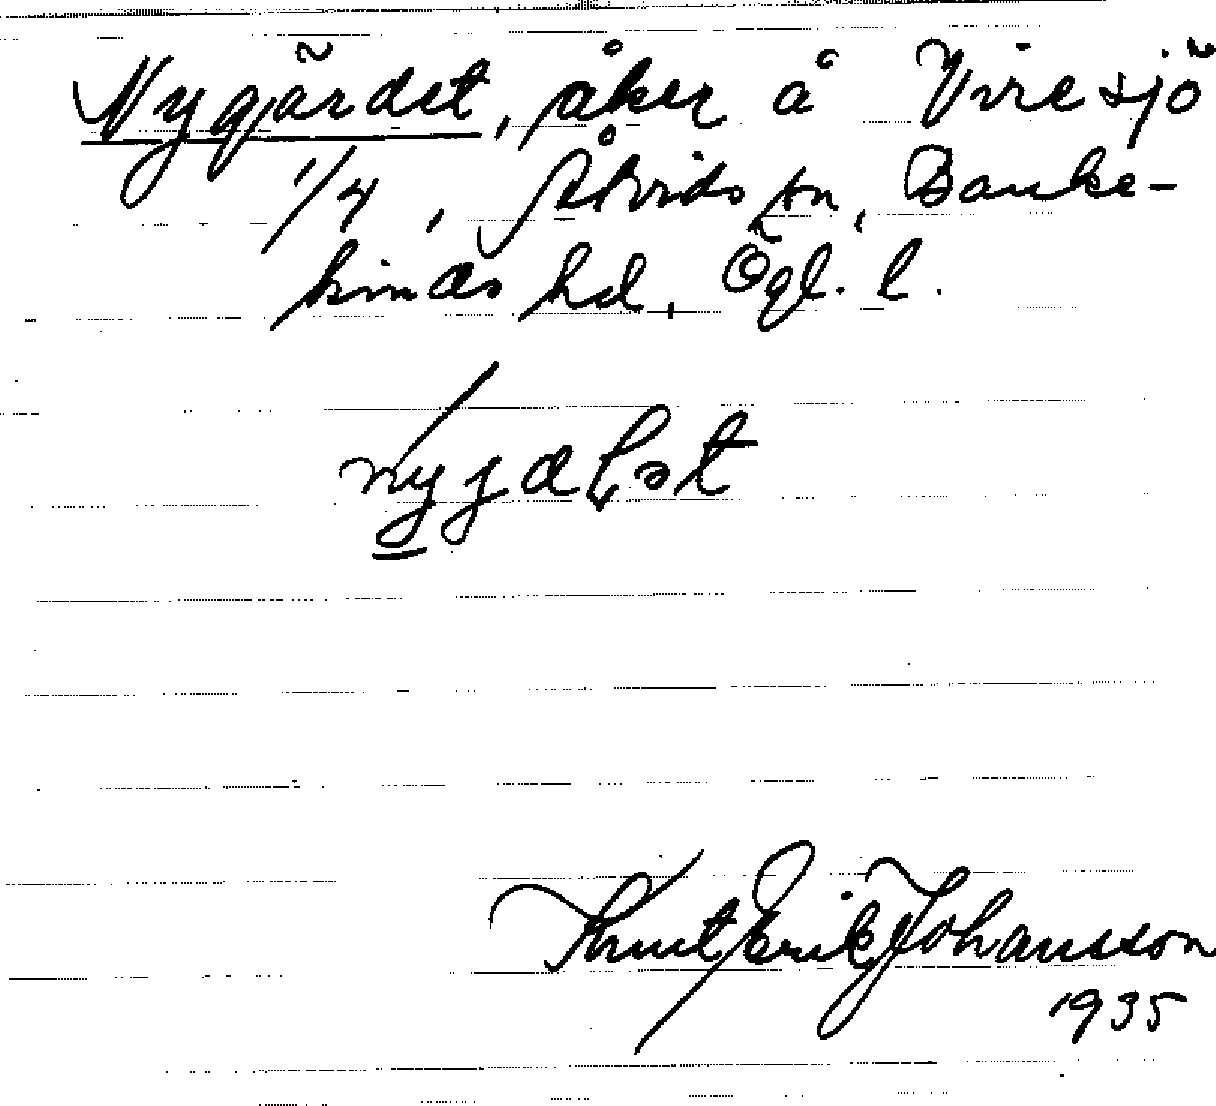 Nygärdet, åker å Viresjö
1/4, Åtvids sn, Banke-
kinds hd, Ögl. l.
Knut Erik Johansson
1935